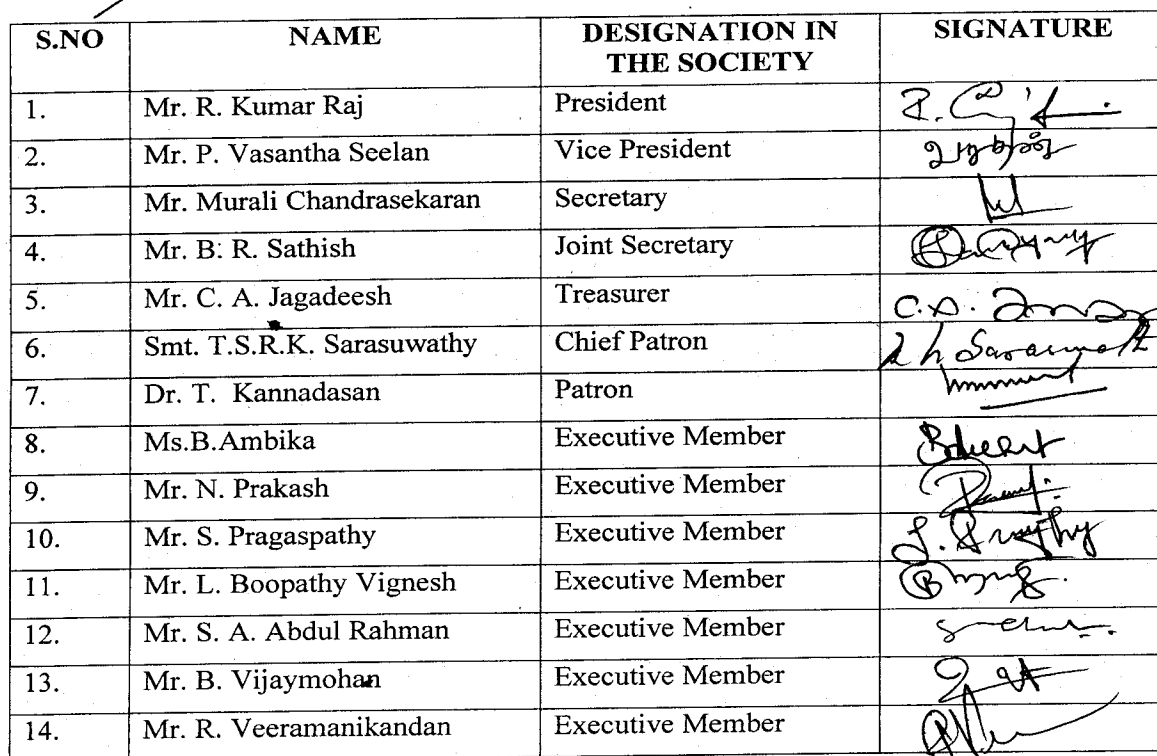 S.NO NAME DESIGNATION IN THE SOCIETY SIGNATURE
1. Mr. R. Kumar Raj President
2. Mr. P. Vasantha Seelan Vice President
3. Mr. Murali Chandrasekaran Secretary
4. Mr. B. R. Sathish Joint Secretary
5. Mr. C. A. Jagadeesh Treasurer C.A.
6. Smt. T.S.R.K. Sarasuwathy Chief Patron
7. Dr. T. Kannadasan Patron
8. Ms.B.Ambika Executive Member
9. Mr. N. Prakash Executive Member
10. Mr. S. Pragaspathy Executive Member
11. Mr. L. Boopathy Vignesh Executive Member
12. Mr. S. A. Abdul Rahman Executive Member
13. Mr. B. Vijaymohan Executive Member
14. Mr. R. Veeramanikandan Executive Member